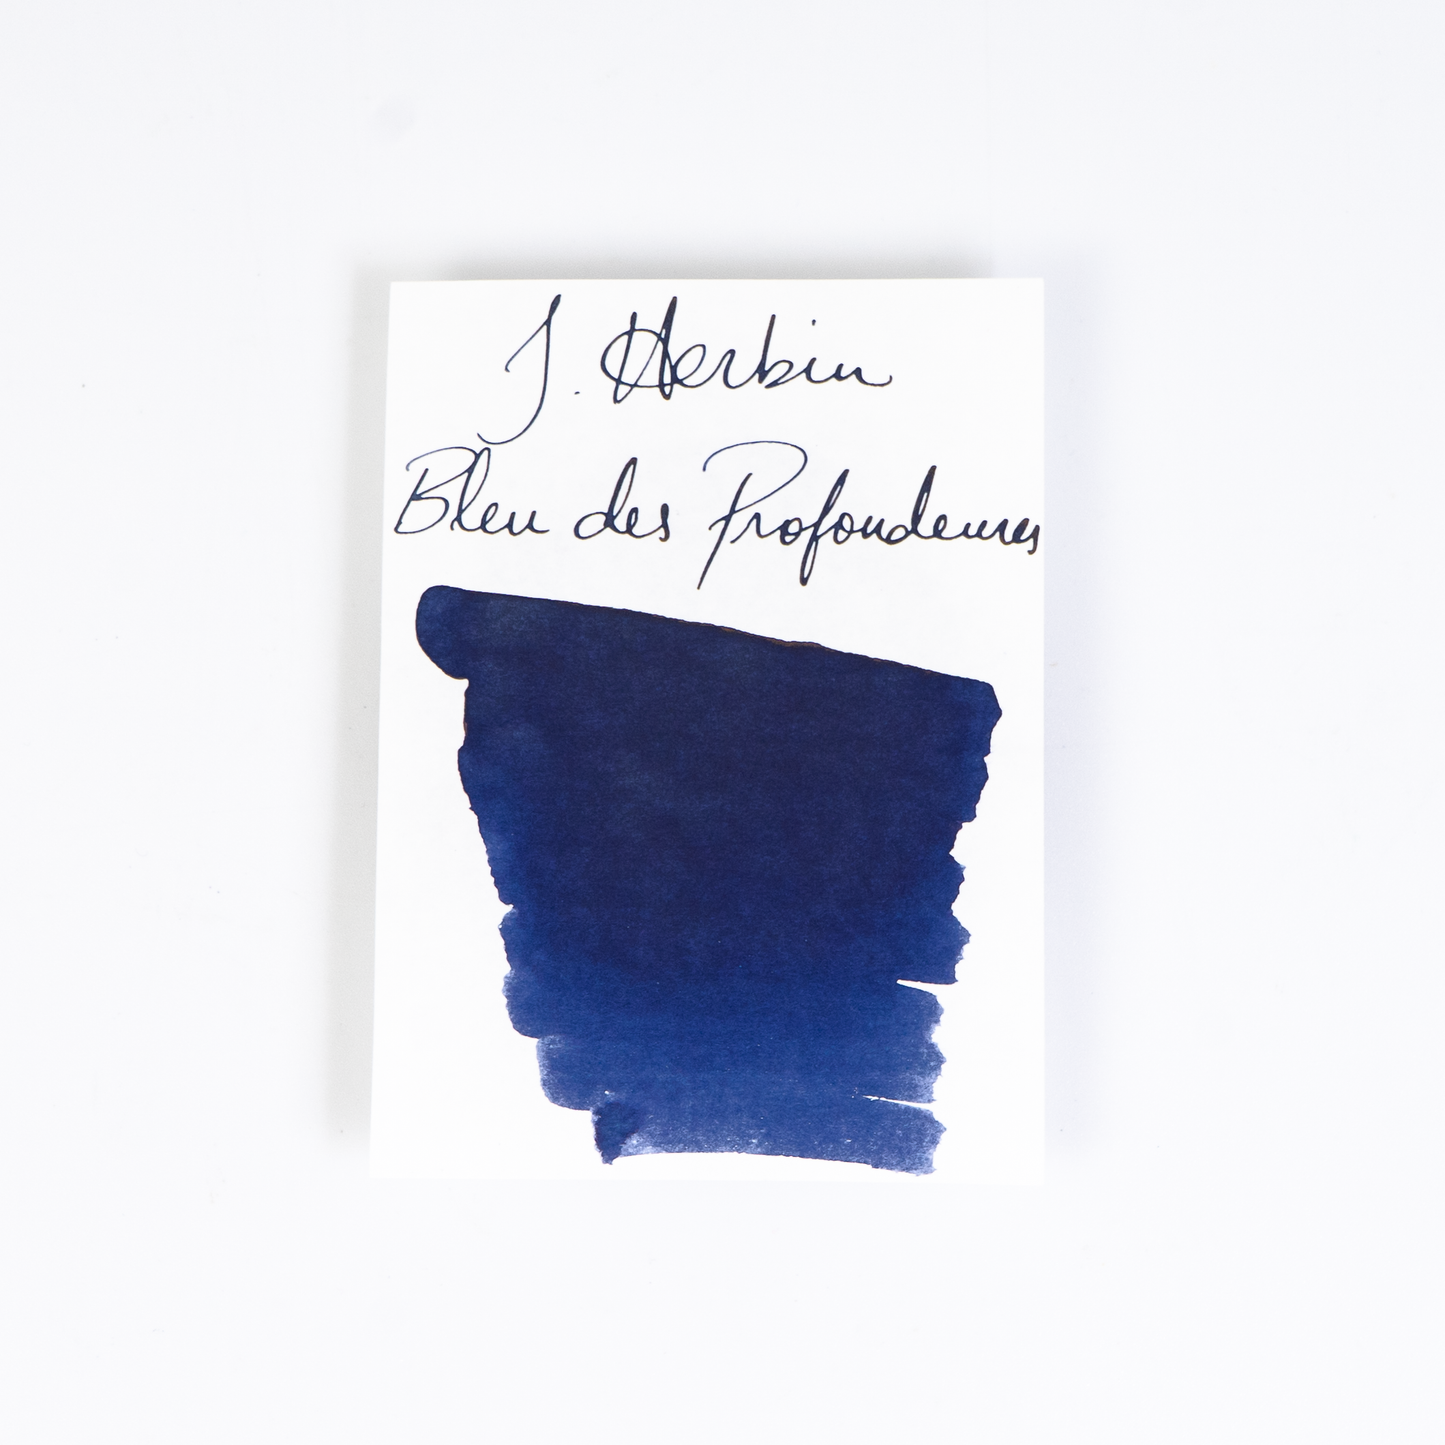 J. Herbin
Bleu des Profondeurs